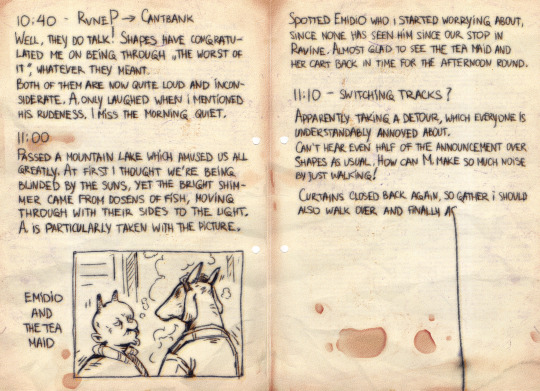 10:40 - RVNEP → CANTBANK
WELL, THEY DO TALK! SHAPES HAVE CONGRATU-
LATED ME ON BEING THROUGH „THE WORST OF
IT", WHATEVER THEY MEANT.
BOTH OF THEM ARE NOW QUITE LOUD AND INCON-
SIDERATE. A. ONLY LAUGHED WHEN I MENTIONED
HIS RUDENESS. I MISS THE MORNING QUIET.
11:00
PASSED A MOUNTAIN LAKE WHICH AMUSED US ALL
GREATLY. AT FIRST I THOUGHT WE'RE BEING
BLINDED BY THE SUNS, YET THE BRIGHT SHIM-
MER CAME FROM DOSENS OF FISH, MOVING
THROUGH WITH THEIR SIDES TO THE LIGHT.
A. IS PARTICULARLY TAKEN WITH THE PICTURE.
EMIDIO
AND
THE TEA
MAID
SPOTTED EMIDIO WHO I STARTED WORRYING ABOUT,
SINCE NONE HAS SEEN HIM SINCE OUR STOP IN
RAVINE. ALMOST GLAD TO SEE THE TEA MAID AND
HER CART BACK IN TIME FOR THE AFTERNOON ROUND.
11:10 - SWITCHING TRACKS?
APPARENTLY TAKING A DETOUR, WHICH EVERYONE IS
UNDERSTANDABLY ANNOYED ABOUT.
CAN'T HEAR EVEN HALF OF THE ANNOUNCEMENT OVER
SHAPES AS USUAL. HOW CAN M. MAKE SO MUCH NOISE
BY JUST WALKING!
CURTAINS CLOSED BACK AGAIN, SO GATHER I SHOULD
ALSO WALK OVER AND FINALLY AS